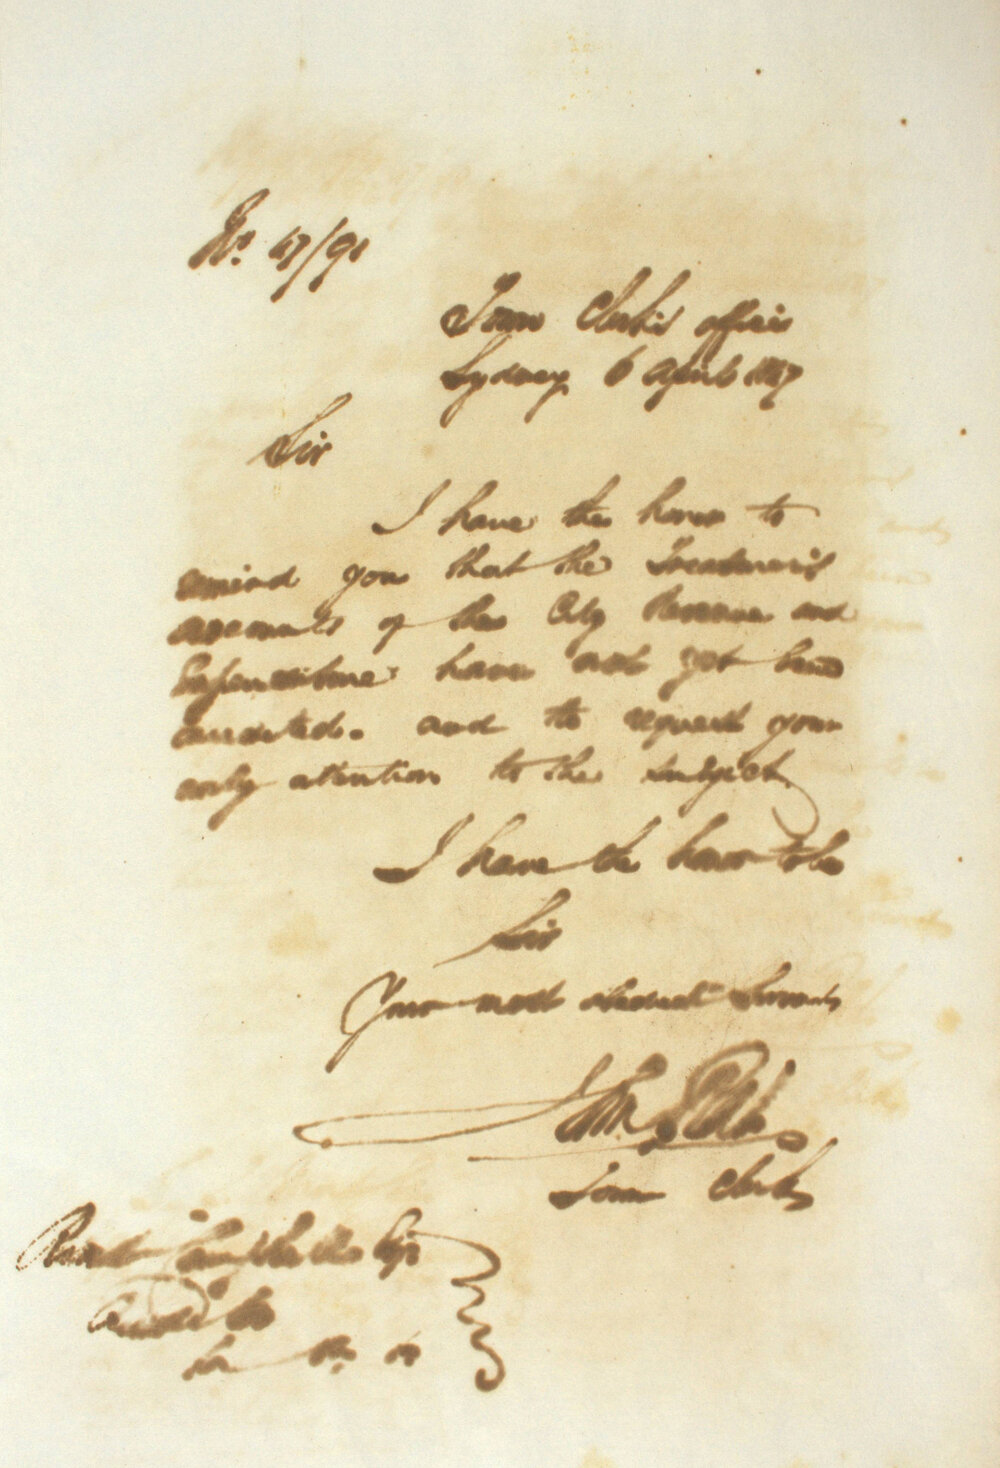 No. 47/91
Town Clerk's Office
Sydney 6 April 1847
Sir
I have the honor to
remind you that the Treasurer's
accounts of the City Revenue and
Expenditure have not yet been
audited. and to request your
early attention to the subject
I have the honor to be
Sir
Your most obedient Servant
John
Town Clerk
Campbell Esq
Auditor